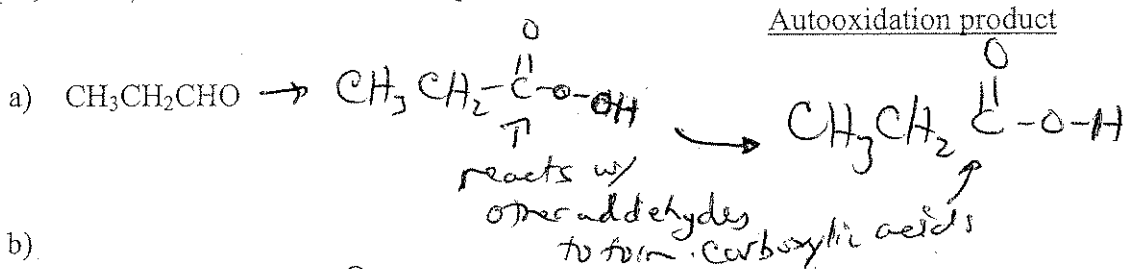 Autooxidation product
a) CH₃CH₂CHO → CH₃CH₂-C-O-OH → CH₃CH₂C-O-H
O O
reacts w/
other aldehydes
to form carboxylic acids
b)